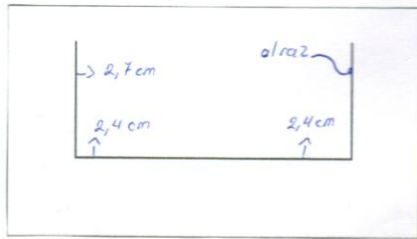 → 2,7 cm
odraz
2,4 cm
2,4 cm